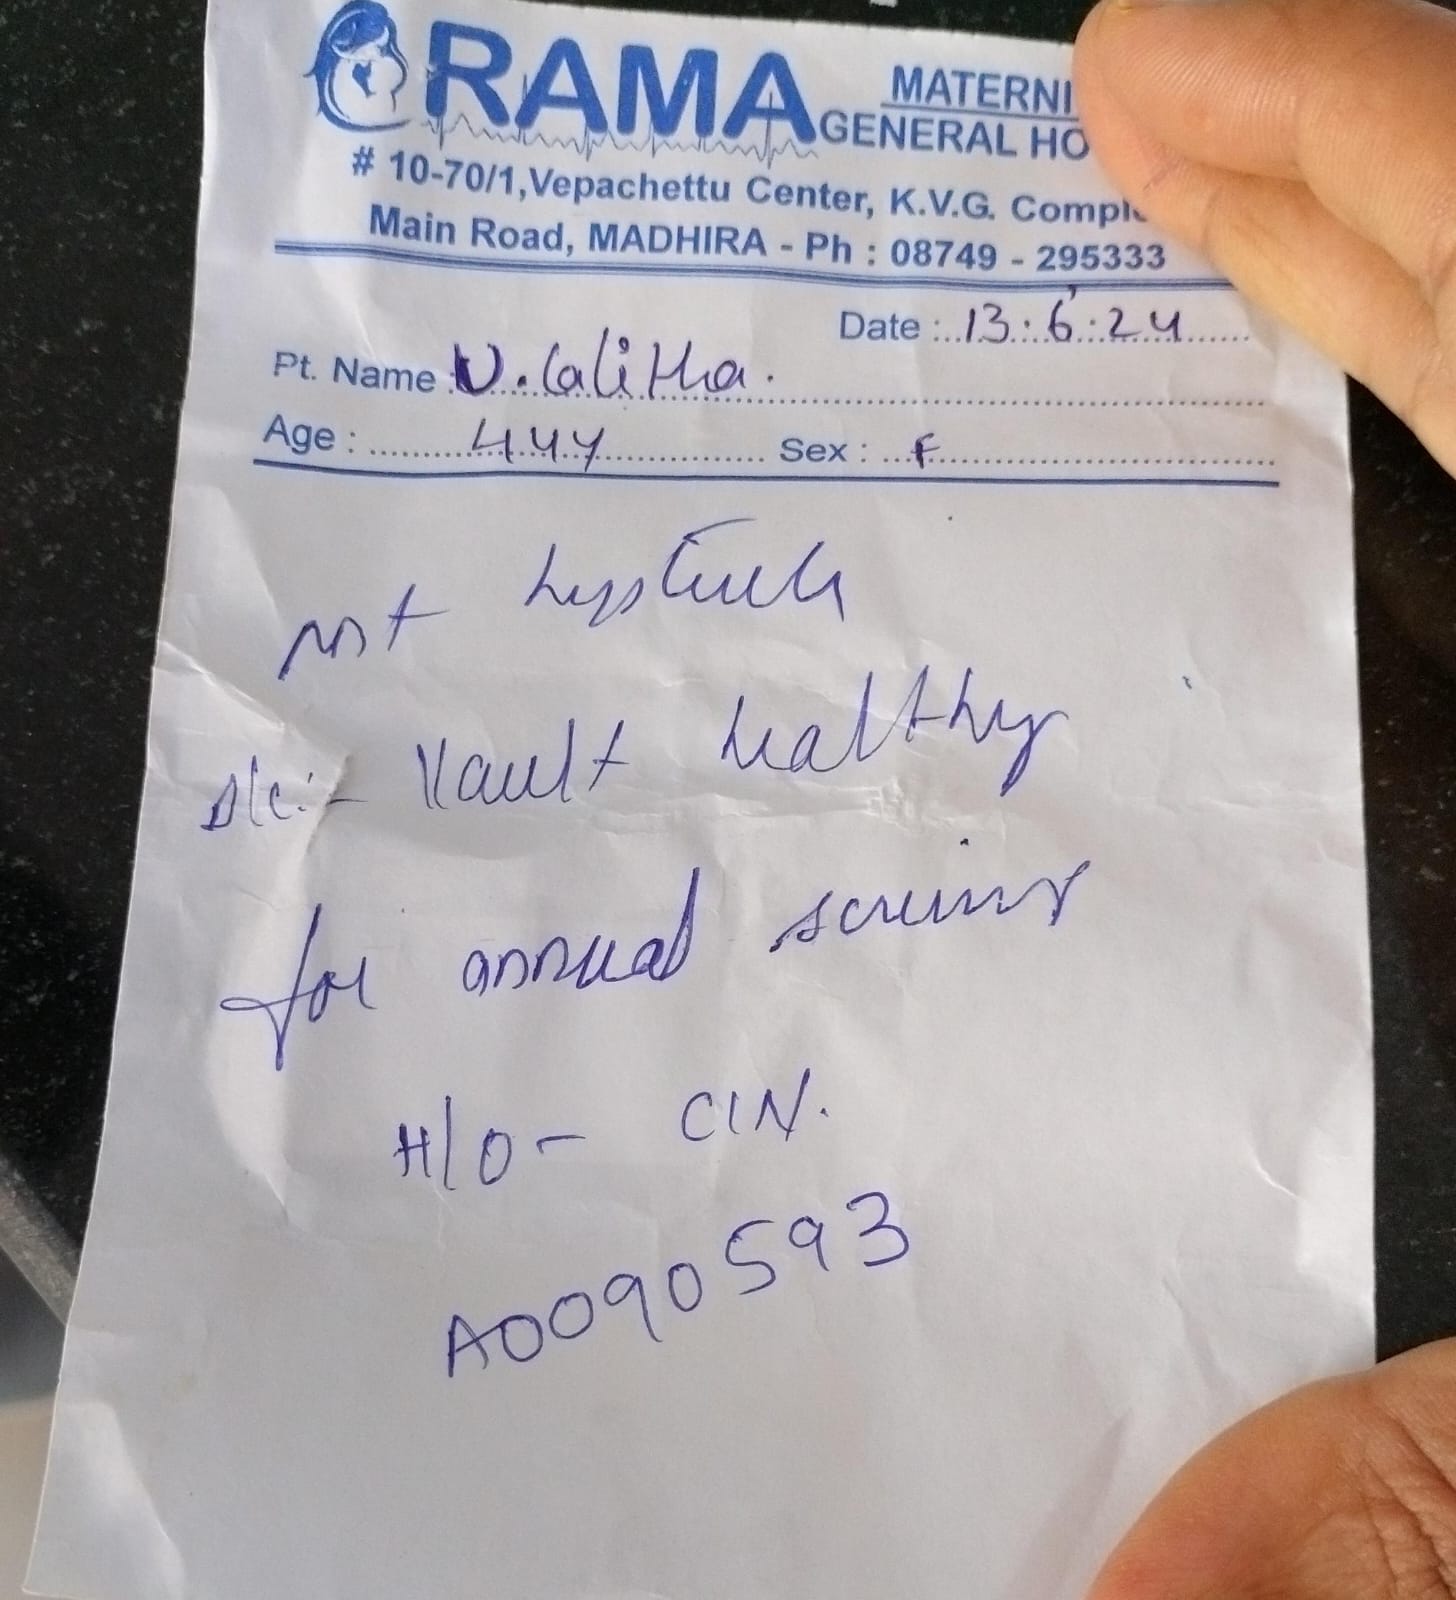 RAMA MATERNI
GENERAL HO
# 10-70/1, Vepachettu Center, K.V.G. Comple
Main Road, MADHIRA - Ph : 08749 - 295333
Date : 13:6:24
Pt. Name : V. Lalitha.
Age : 44y Sex : F
Vault healthy
for annual
H/O - CIN.
A0090593